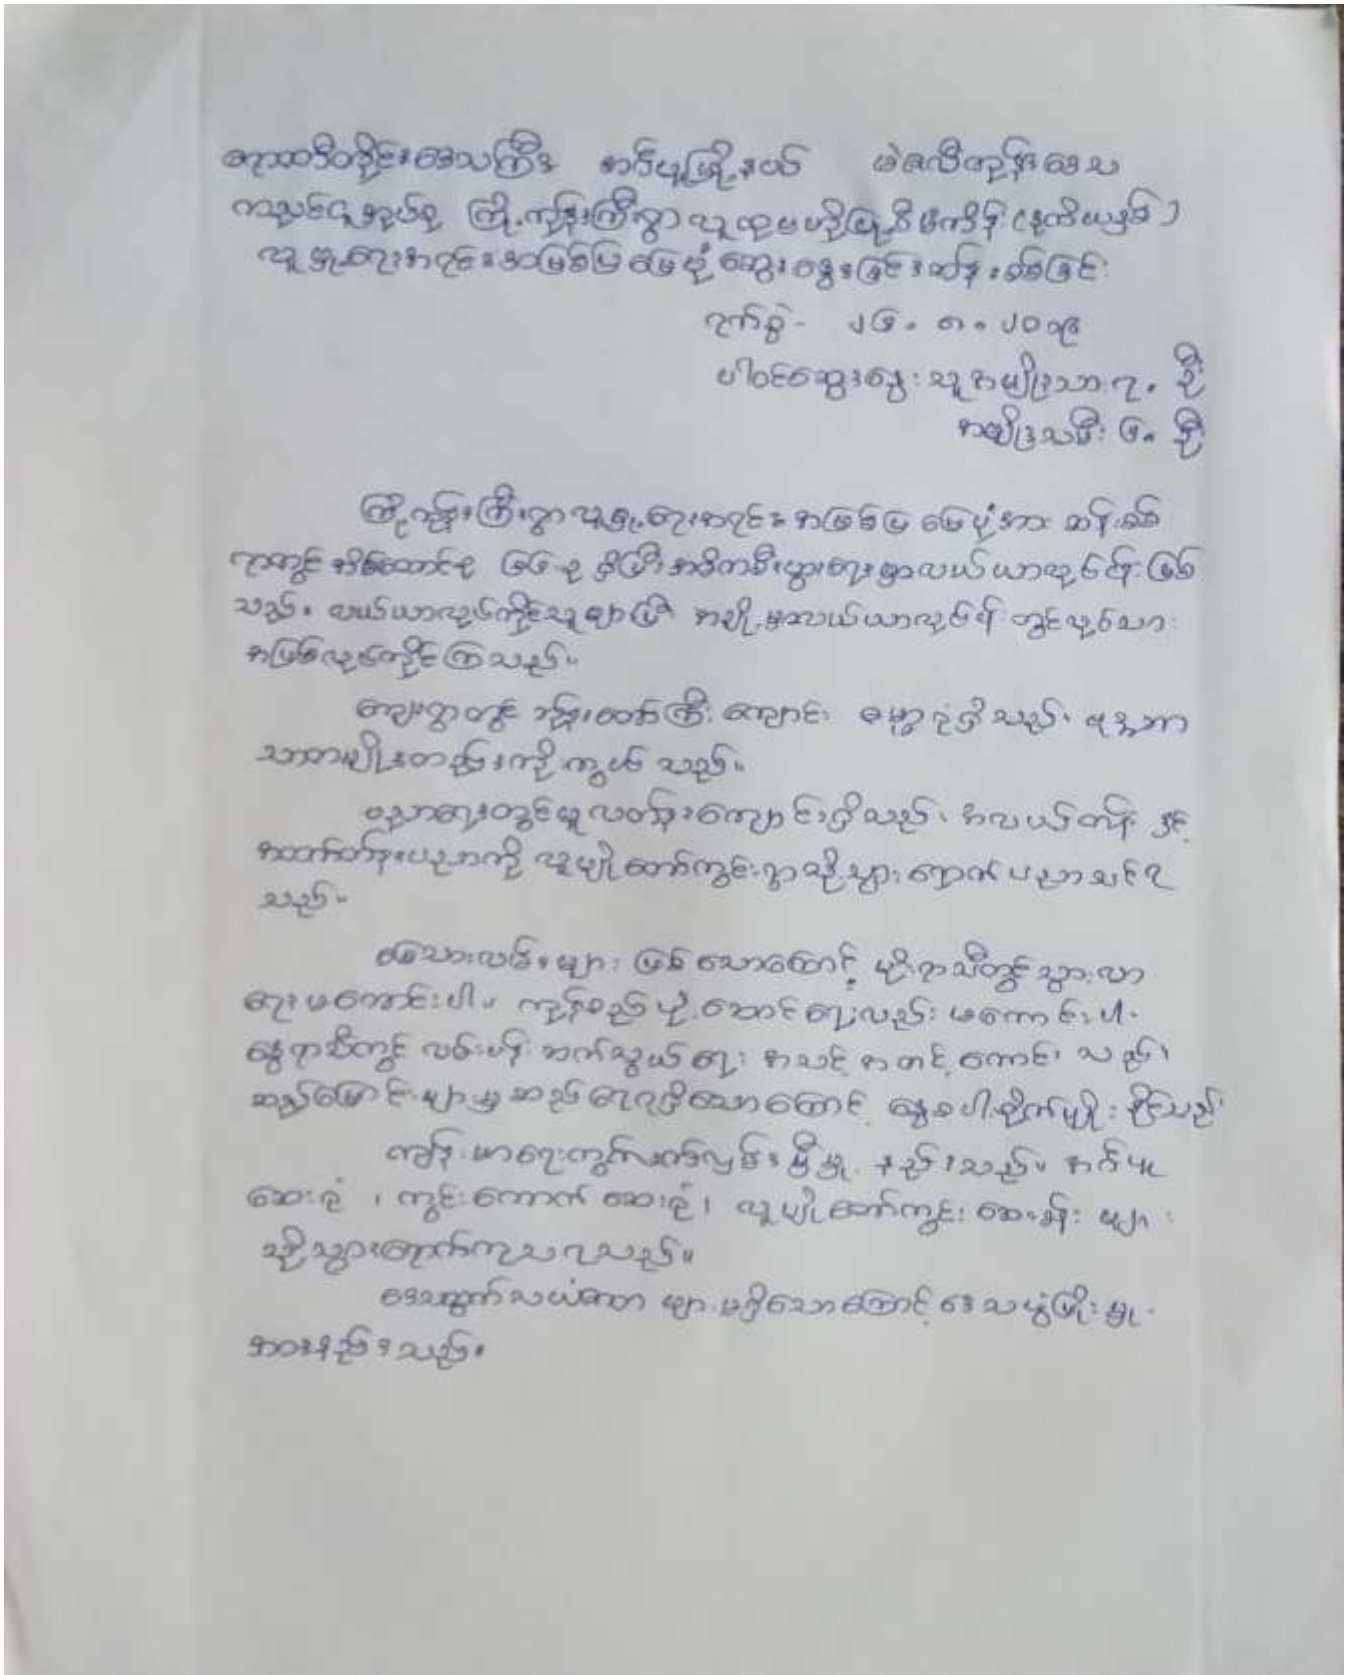 ဧရာဝတီတိုင်းဒေသကြီး ငပုမြို့နယ် မဲဇလီကုန်းဒေသ
ကညင်ငူအုပ်စု ကြို့ကုန်းကြီးရွာ လူထုဗဟိုပြုစီမံကိန်း
လူမှုရေးအရင်းအမြစ်ပြမြေပုံ ဆွေးနွေးခြင်းဆန်းစစ်ခြင်း
ရက်စွဲ - ၂၆.၈.၂၀၁၉
ပါဝင်ဆွေးနွေးသူ အမျိုးသား ၇ ဦး
အမျိုးသမီး ၆ ဦး
ကြို့ကုန်းကြီးရွာ လူမှုရေးအရင်းအမြစ်ပြမြေပုံအား ဆန်းစစ်
ရာတွင် အိမ်ထောင်စု ၆၆ စု ရှိပြီး အဓိကစီးပွားရေးမှာ လယ်ယာလုပ်ငန်းဖြစ်
သည်။ လယ်ယာလုပ်ကိုင်သူများပြီး အချို့မှာ လယ်ယာလုပ်ငန်းတွင် လုပ်သား
အဖြစ်လုပ်ကိုင်ကြသည်။
ကျေးရွာတွင် ဘုန်းတော်ကြီးကျောင်း ဓမ္မာရုံရှိသည်၊ ဗုဒ္ဓဘာ
သာတစ်မျိုးတည်းကိုးကွယ်သည်။
ပညာရေးတွင် မူလတန်းကျောင်းရှိသည်၊ အလယ်တန်း နှင့်
အထက်တန်းပညာကို လူပျိုတော်ကွင်းရွာသို့ သွားရောက်ပညာသင်ရ
သည်။
မြေသားလမ်းများ ဖြစ်သောကြောင့် မိုးရာသီတွင် သွားလာ
ရေး မကောင်းပါ။ ကုန်စည်ပို့ဆောင်ရေးလည်း မကောင်းပါ။
နွေရာသီတွင် လမ်းပန်းဆက်သွယ်ရေး အသင့်အတင့်ကောင်းသည်၊
ဆည်မြောင်းများမှ ဆည်ရေရရှိသောကြောင့် နွေစပါးစိုက်ပျိုးနိုင်သည်
ကျန်းမာရေးတွင် လက်လှမ်းမီမှု နည်းသည်။ ငပု
ဆေးရုံ ၊ ကွင်းကောက်ဆေးရုံ ၊ လူပျိုတော်ကွင်း ဆေးခန်း များ
သို့သွားရောက်ကုသရသည်။
ဒေသထွက်သယံဇာတ များ မရှိသောကြောင့် ဒေသဖွံ့ဖြိုးမှု
အားနည်းသည်။